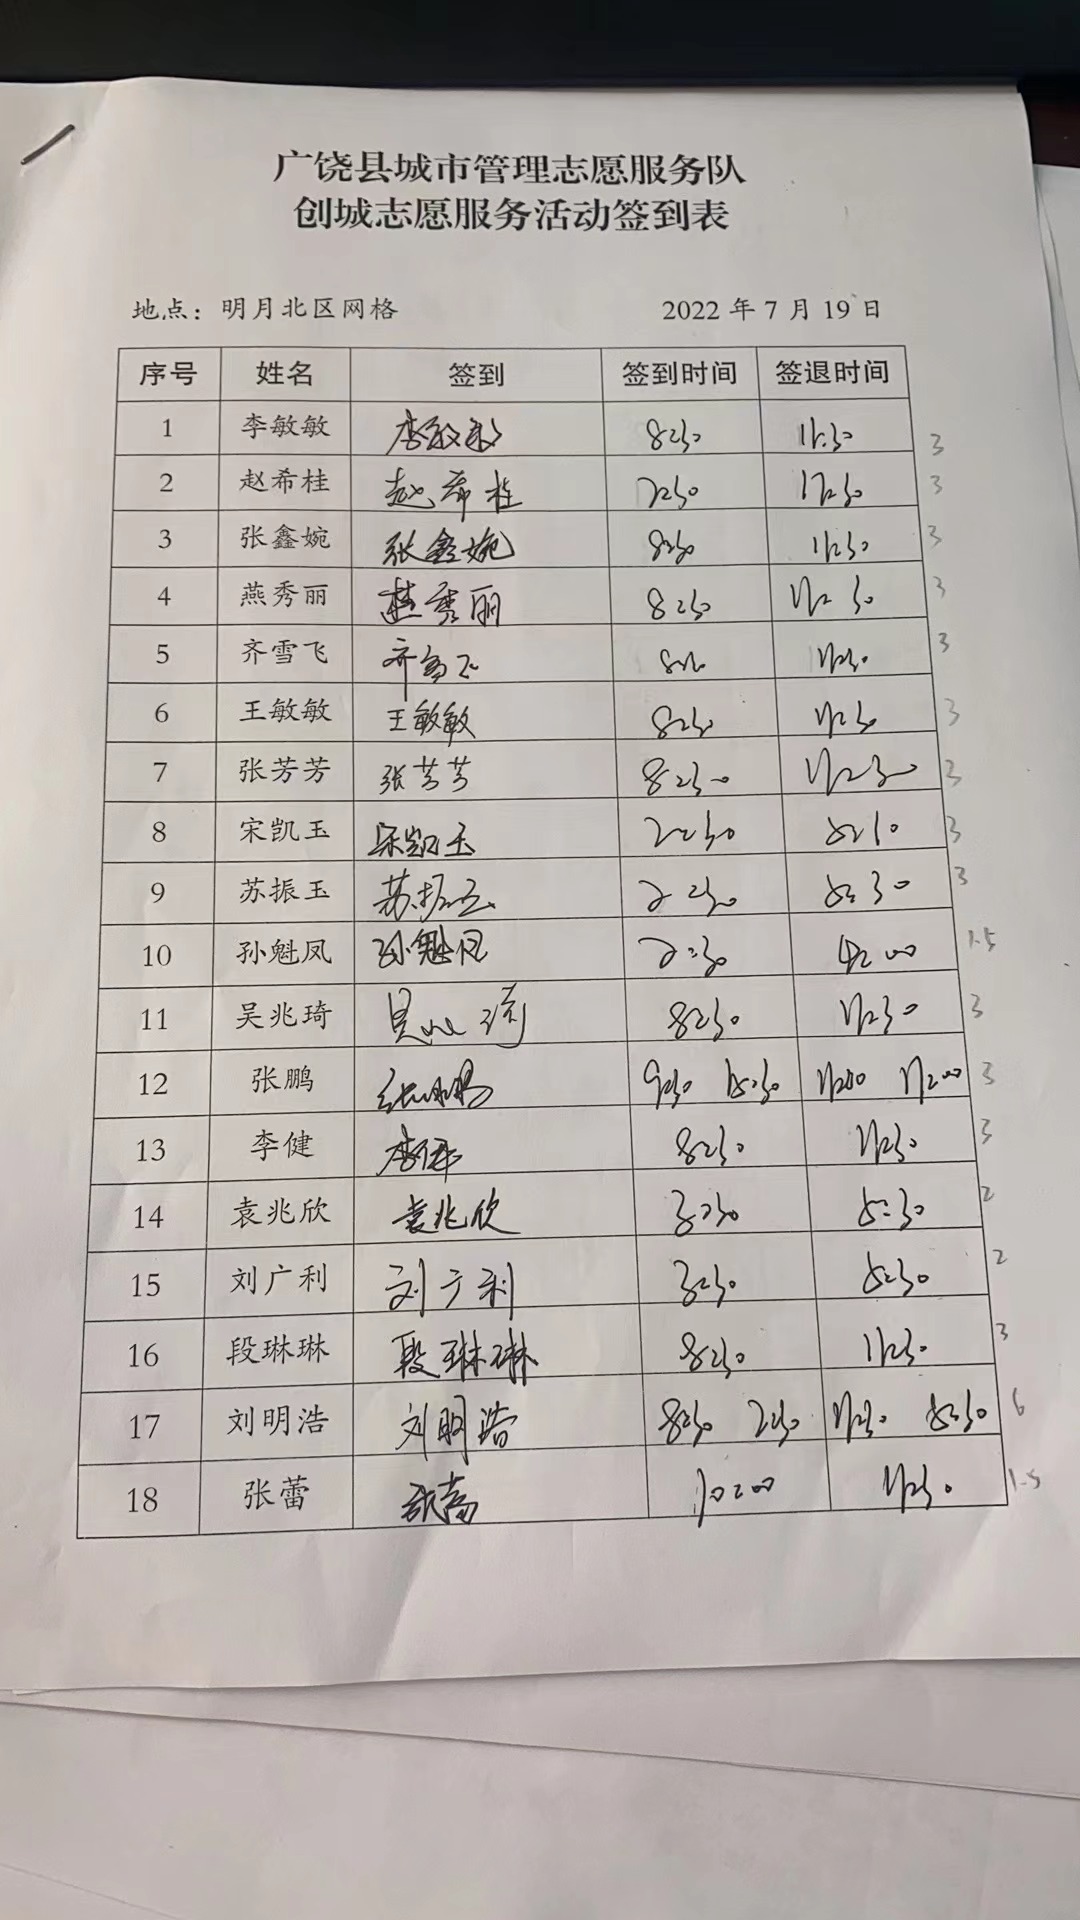 广饶县城市管理志愿服务队
创城志愿服务活动签到表
地点：明月北区网格 2022年7月19日
序号 姓名 签到 签到时间 签退时间
1 李敏敏 李敏敏 8:30 11:30 3
2 赵希桂 赵希桂 3
3 张鑫婉 张鑫婉 8:30 11:30 3
4 燕秀丽 燕秀丽 8:30 11:30 3
5 齐雪飞 齐雪飞 11:30 3
6 王敏敏 王敏敏 8:30 11:30 3
7 张芳芳 张芳芳 8:30 11:30 3
8 宋凯玉 宋凯玉 2:30 5:30 3
9 苏振玉 苏振玉 2:30 5:30 3
10 孙魁凤 孙魁凤 2:30 4:00 1.5
11 吴兆琦 吴兆琦 8:30 11:30 3
12 张鹏 张鹏 9:30 3
13 李健 李健 8:30 11:30 3
14 袁兆欣 袁兆欣 3:30 5:30 2
15 刘广利 刘广利 3:30 5:30 2
16 段琳琳 段琳琳 8:30 11:30 3
17 刘明浩 刘明浩 8:30 2:30 11:30 5:30 6
18 张蕾 张蕾 10:00 11:30 1.5